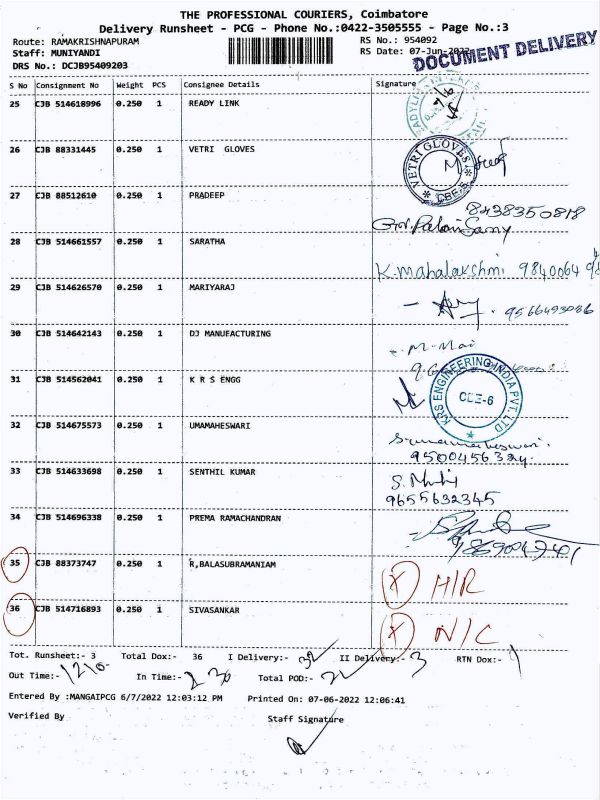 THE PROFESSIONAL COURIERS, Coimbatore
Delivery Runsheet - PCG - Phone No.:0422-3505555 - Page No.:3
Route: RAMAKRISHNAPURAM RS No.: 954092
Staff: MUNIYANDI RS Date: 07-Jun-2022
DOCUMENT DELIVERY
DRS No.: DCJB95409203
S No Consignment No Weight PCS Consignee Details Signature
25 CJB 514618996 0.250 1 READY LINK
26 CJB 88331445 0.250 1 VETRI GLOVES
VETRI GLOVES CBE-6
27 CJB 88512610 0.250 1 PRADEEP
8438350818
28 CJB 514661557 0.250 1 SARATHA
K. Mahalakshmi 9840064
29 CJB 514626570 0.250 1 MARIYARAJ
9566493086
30 CJB 514642143 0.250 1 DJ MANUFACTURING
31 CJB 514562041 0.250 1 K R S ENGG
KRS ENGINEERING INDIA PVT. LTD CBE-6
32 CJB 514675573 0.250 1 UMAMAHESWARI
33 CJB 514633698 0.250 1 SENTHIL KUMAR
9655632345
34 CJB 514696338 0.250 1 PREMA RAMACHANDRAN
35 CJB 88373747 0.250 1 R,BALASUBRAMANIAM
X
36 CJB 514716893 0.250 1 SIVASANKAR
X N/C
Tot. Runsheet:- 3 Total Dox:- 36 I Delivery:- II Delivery:- 3 RTN Dox:-
Out Time:- 1210 In Time:- Total POD:-
Entered By :MANGAIPCG 6/7/2022 12:03:12 PM Printed On: 07-06-2022 12:06:41
Verified By Staff Signature